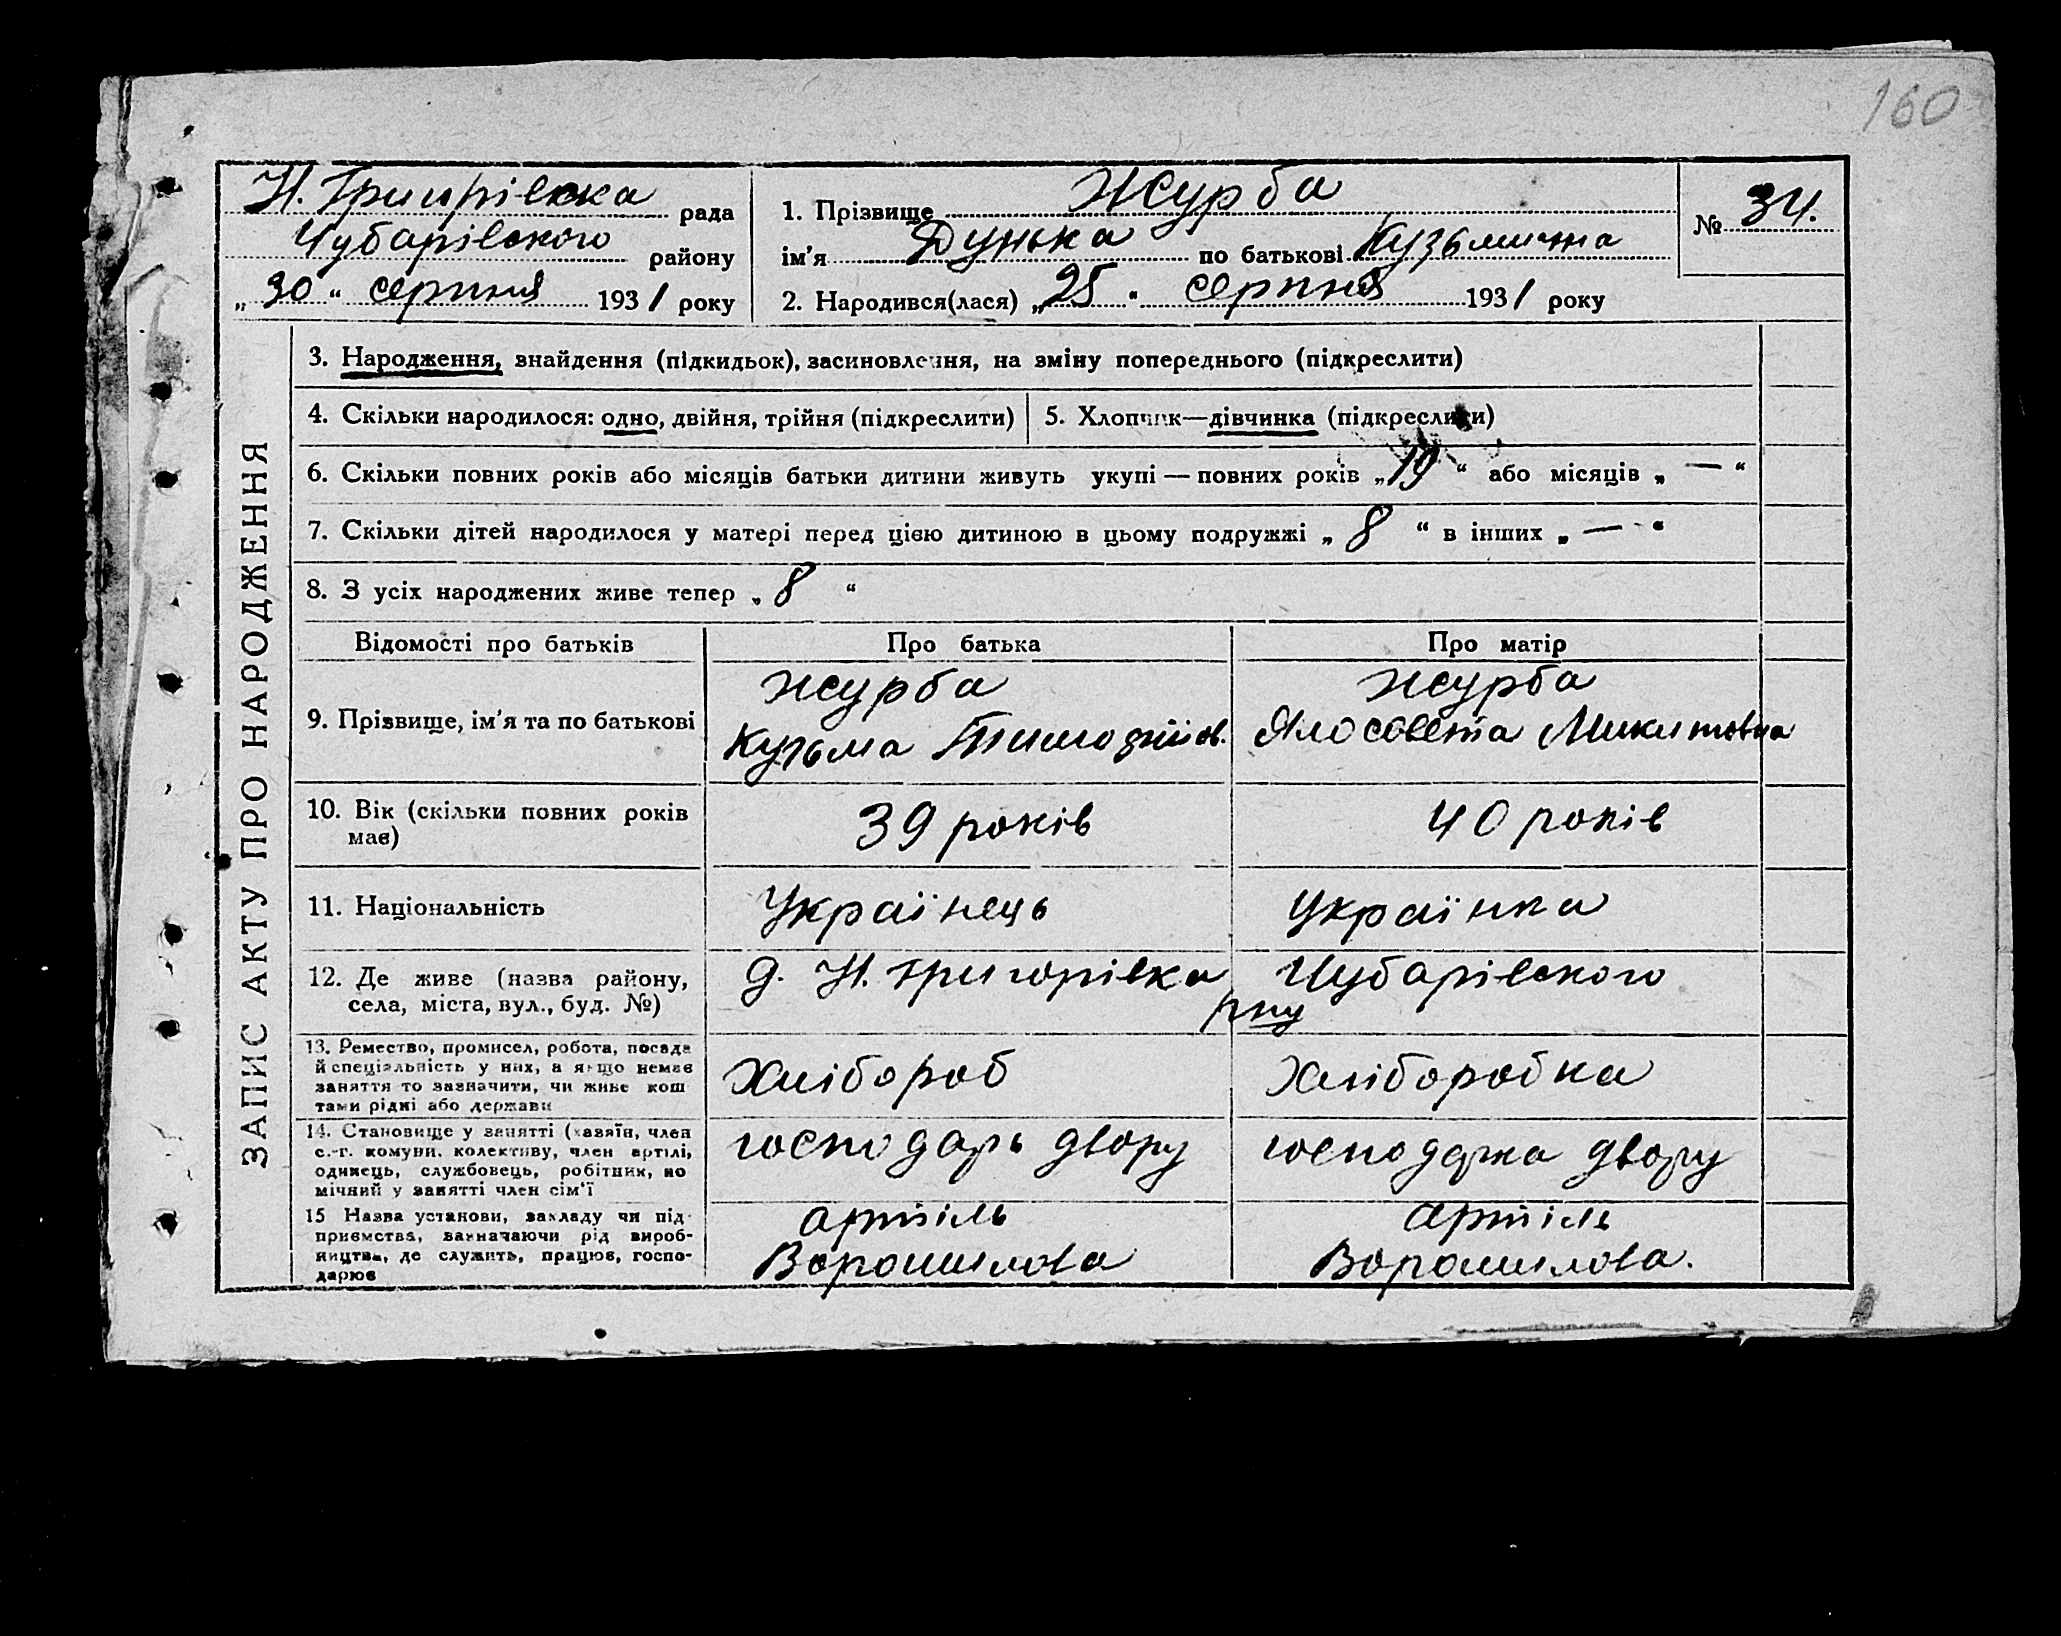 160
Н. Григорівська рада
Чубарівського району
„30“ серпня 1931 року
1. Прізвище Журба
ім'я Дунька по батькові Кузьмична
2. Народився(лася) „25“ серпня 1931 року
№ 34.
ЗАПИС АКТУ ПРО НАРОДЖЕННЯ
3. Народження, знайдення (підкидьок), засиновлення, на зміну попереднього (підкреслити)
4. Скільки народилося: одно, двійня, трійня (підкреслити)
5. Хлопчик—дівчинка (підкреслити)
6. Скільки повних років або місяців батьки дитини живуть укупі — повних років „19“ або місяців „—“
7. Скільки дітей народилося у матері перед цією дитиною в цьому подружжі „8“ в інших „—“
8. З усіх народжених живе тепер „8“
Відомості про батьків Про батька Про матір
9. Прізвище, ім'я та по батькові
Журба
Кузьма
Журба
Ялосовета Микитовна
10. Вік (скільки повних років
має)
39 років
40 років
11. Національність
Українець
Українка
12. Де живе (назва району,
села, міста, вул., буд. №)
д. Н. Григорівка Чубарівського
рну
13. Ремество, промисел, робота, посада
й спеціяльність у них, а якщо немає
заняття то зазначити, чи живе кош
тами рідні або держави
Хлібороб
Хліборобка
14. Становище у занятті (хазяїн, член
с.-г. комуни, колективу, член артілі,
одинець, службовець, робітник, по
мічний у занятті член сім'ї
господарь двору
господарка двору
15 Назва установи, закладу чи під-
приємства, зазначаючи рід вироб-
ництва, де служить, працює, госпо-
дарює
артіль
Ворошилова
артіль
Ворошилова.